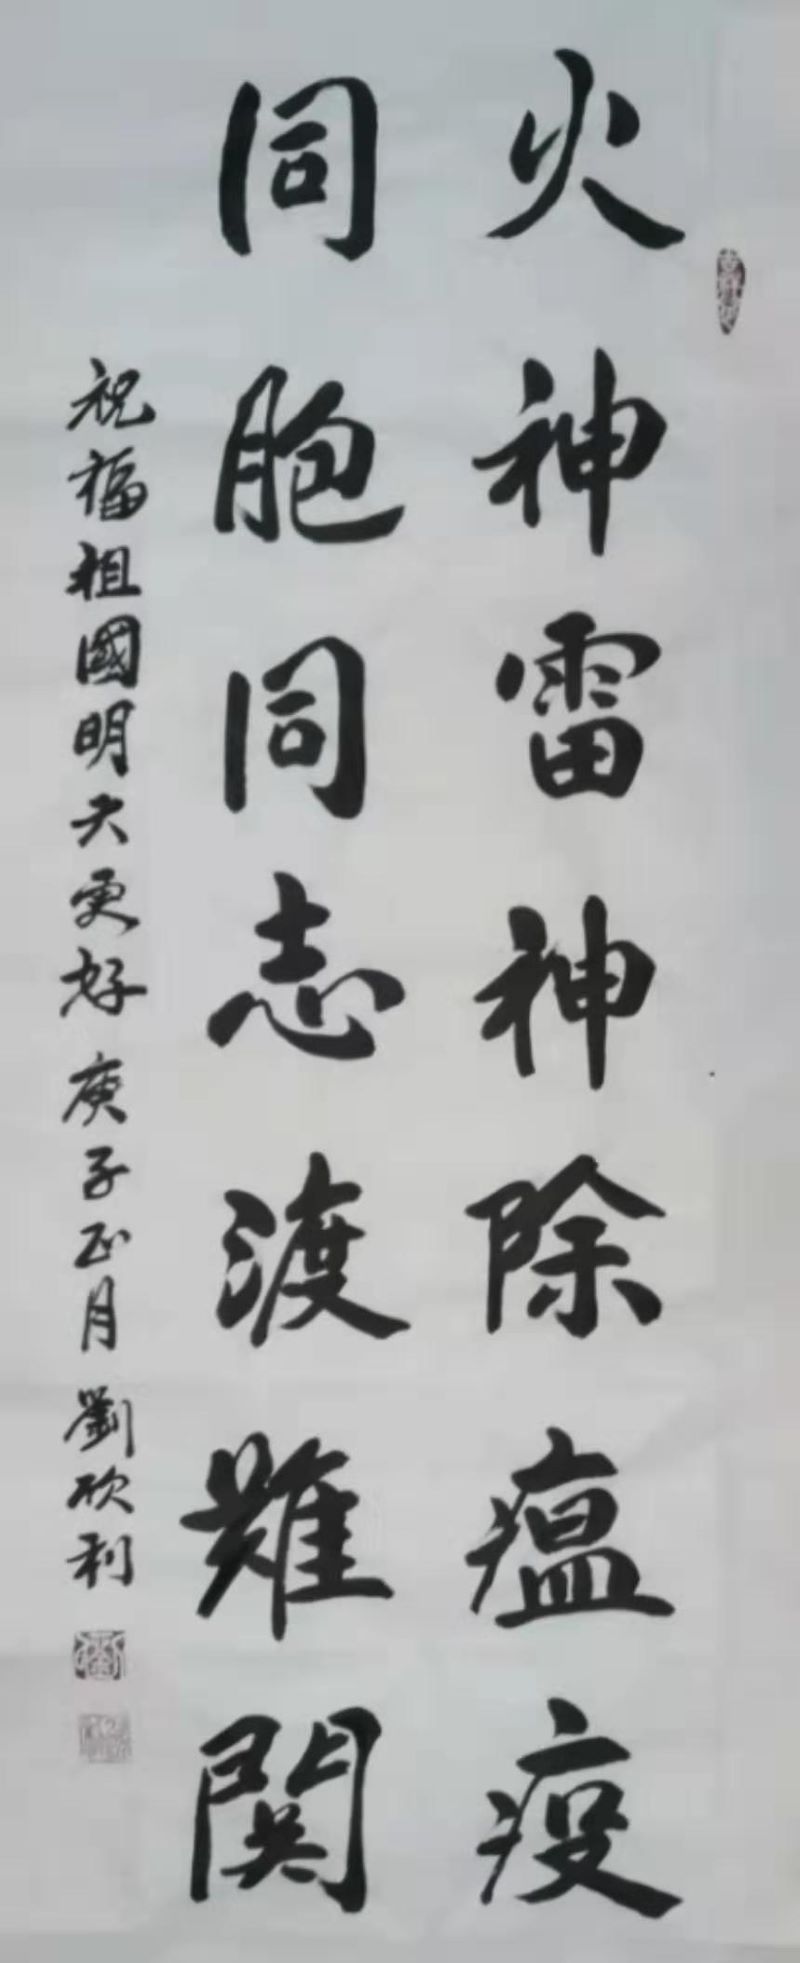 火神雷神除瘟疫
同胞同志渡難関
祝福祖國明天更好 庚子正月 劉欣利